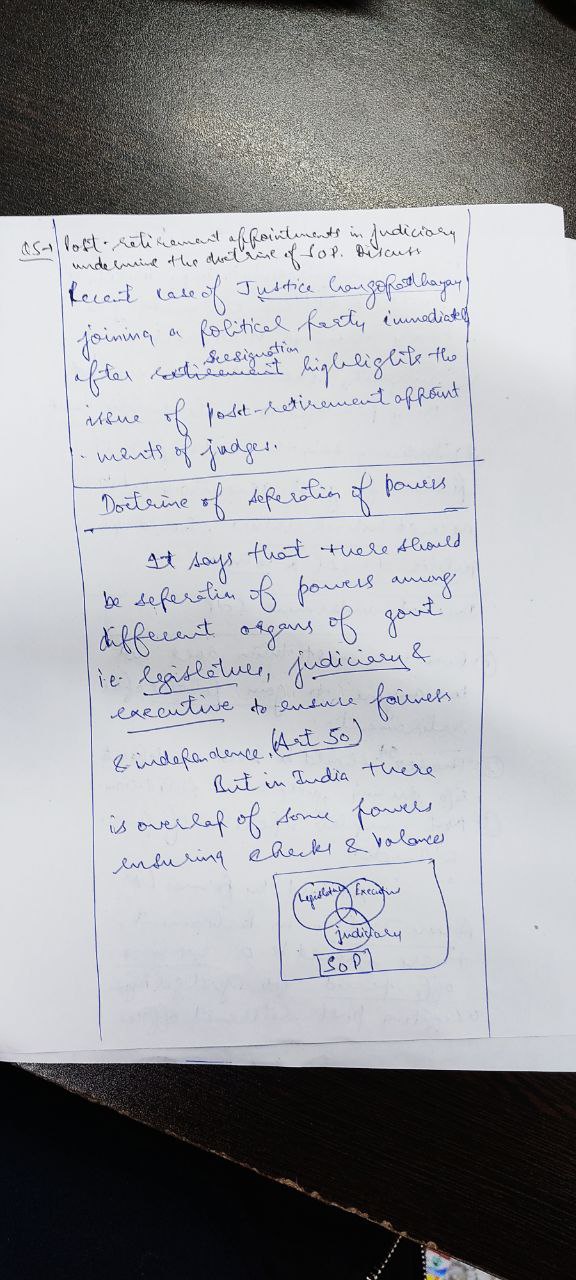 Q5→ Post-retirement appointments in judiciary
undermine the doctrine of SOP. Discuss
Recent case of Justice Gangopadhayay
joining a political party immediately
after retirement resignation highlights the
issue of post-retirement appoint
- ments of judges.
Doctrine of seperation of powers
It says that there should
be seperation of powers among
different organs of govt
i.e. legislature, judiciary &
executive to ensure fairness
& independence. (Art 50)
But in India there
is overlap of some powers
ensuring checks & balances
Legislature Executive
judiciary
SOP